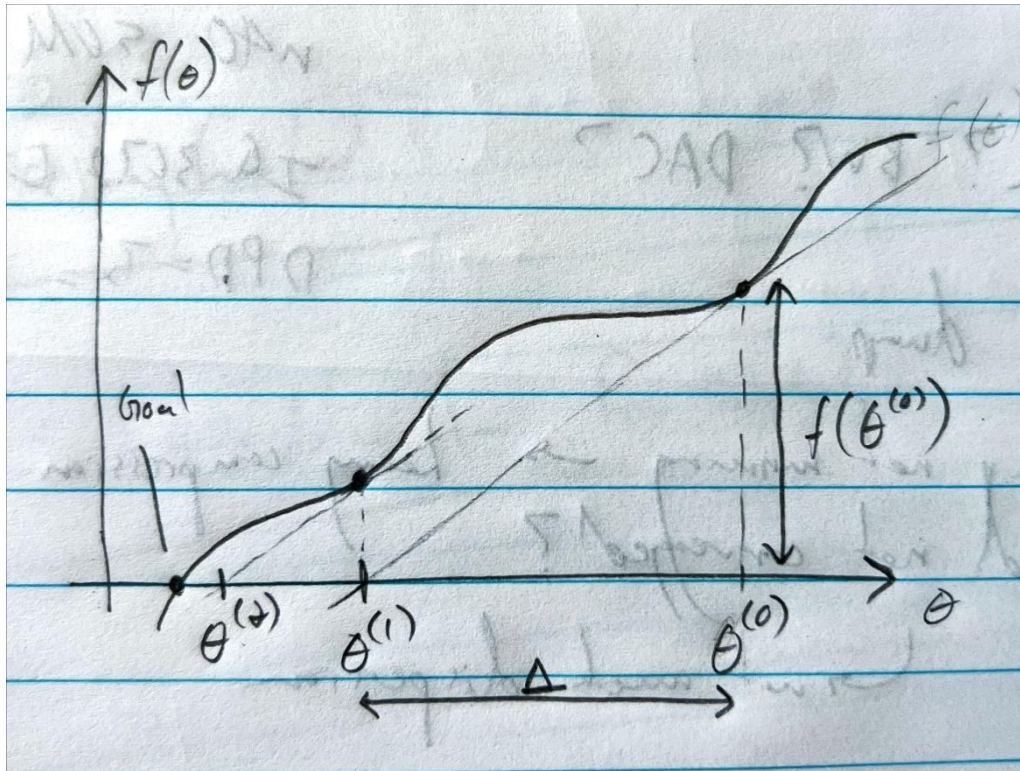 f(θ)
f(θ)
Goal
f(θ^(0))
θ^(2)
θ^(1)
θ^(0)
θ
Δ